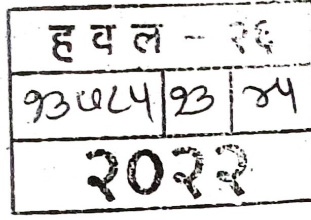 ह व ल - २६
१३५८५ १३ ४५
२०२२